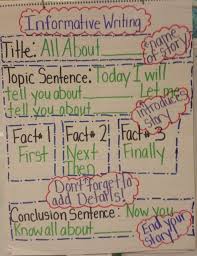 Informative Writing
Title: All About
name of story
Topic Sentence: Today I will
tell you about Let me
tell you about
Introduces story
Fact# 1 Fact# 2 Fact # 3
First Next Finally
Then
Don't forget to
add Details!
Conclusion Sentence: Now you
Know all about
End your
story!